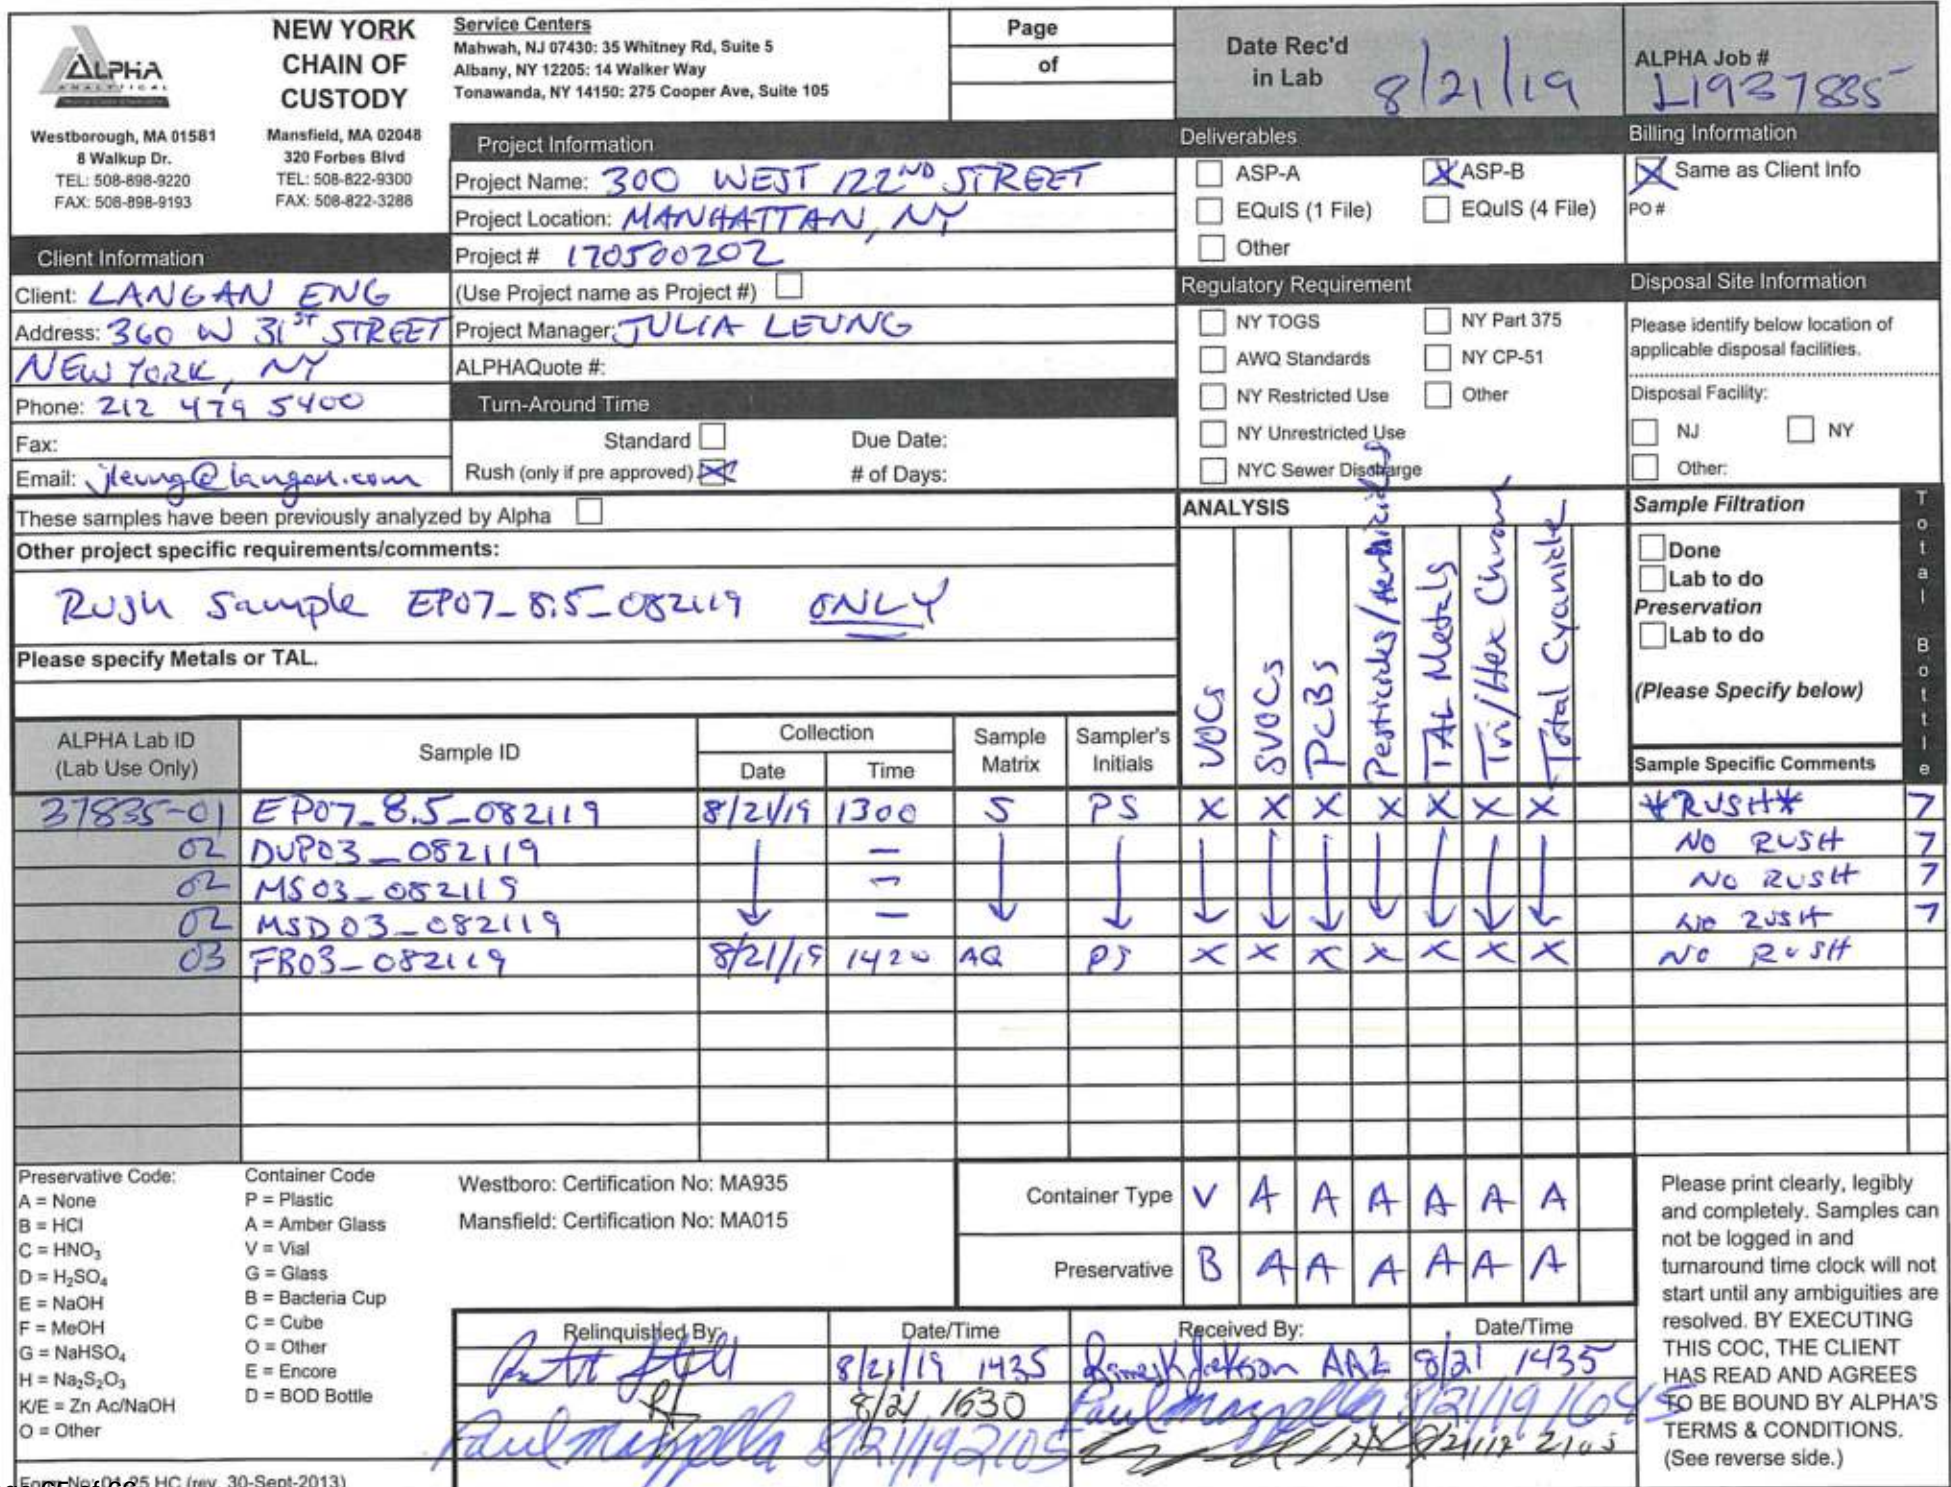 ALPHA
ANALYTICAL
NEW YORK
CHAIN OF
CUSTODY
Westborough, MA 01581
8 Walkup Dr.
TEL: 508-898-9220
FAX: 508-898-9193
Mansfield, MA 02048
320 Forbes Blvd
TEL: 508-822-9300
FAX: 508-822-3288
Service Centers
Mahwah, NJ 07430: 35 Whitney Rd, Suite 5
Albany, NY 12205: 14 Walker Way
Tonawanda, NY 14150: 275 Cooper Ave, Suite 105
Page
of
Date Rec'd
in Lab 8/21/19
ALPHA Job #
L1937835
Client Information
Client: LANGAN ENG
Address: 360 W 31ST STREET
NEW YORK, NY
Phone: 212 479 5400
Fax:
Email: jleung@langan.com
Project Information
Project Name: 300 WEST 122ND STREET
Project Location: MANHATTAN, NY
Project # 170500202
(Use Project name as Project #)
Project Manager: JULIA LEUNG
ALPHAQuote #:
Turn-Around Time
Standard Due Date:
Rush (only if pre approved) X # of Days:
Deliverables
ASP-A X ASP-B
EQuIS (1 File) EQuIS (4 File)
Other
Billing Information
X Same as Client Info
PO #
Regulatory Requirement
NY TOGS NY Part 375
AWQ Standards NY CP-51
NY Restricted Use Other
NY Unrestricted Use
NYC Sewer Discharge
Disposal Site Information
Please identify below location of
applicable disposal facilities.
Disposal Facility:
NJ NY
Other:
These samples have been previously analyzed by Alpha
Other project specific requirements/comments:
Rush Sample EP07_8.5_082119 ONLY
Please specify Metals or TAL.
ANALYSIS
VOCs
SVOCs
PCBs
Pesticides/Herbicides
TAL Metals
Tri/Hex Chrom
Total Cyanide
Sample Filtration
Done
Lab to do
Preservation
Lab to do
(Please Specify below)
Total Bottle
ALPHA Lab ID
(Lab Use Only)
Sample ID
Collection
Date Time
Sample
Matrix
Sampler's
Initials
Sample Specific Comments
37835-01 EP07_8.5_082119 8/21/19 1300 S PS X X X X X X X *RUSH* 7
02 DUP03_082119 — NO RUSH 7
02 MS03_082119 — NO RUSH 7
02 MSD03_082119 — NO RUSH 7
03 FB03_082119 8/21/19 1420 AQ PS X X X X X X X NO RUSH
Preservative Code:
A = None
B = HCl
C = HNO3
D = H2SO4
E = NaOH
F = MeOH
G = NaHSO4
H = Na2S2O3
K/E = Zn Ac/NaOH
O = Other
Container Code
P = Plastic
A = Amber Glass
V = Vial
G = Glass
B = Bacteria Cup
C = Cube
O = Other
E = Encore
D = BOD Bottle
Westboro: Certification No: MA935
Mansfield: Certification No: MA015
Container Type V A A A A A A
Preservative B A A A A A A
Relinquished By: Date/Time Received By: Date/Time
8/21/19 1435 Jackson AAL 8/21 1435
8/21 1630 Paul Mazzella 8/21/19 1645
Paul Mazzella 8/21/19 2105 8/21/19 2105
Please print clearly, legibly
and completely. Samples can
not be logged in and
turnaround time clock will not
start until any ambiguities are
resolved. BY EXECUTING
THIS COC, THE CLIENT
HAS READ AND AGREES
TO BE BOUND BY ALPHA'S
TERMS & CONDITIONS.
(See reverse side.)
Form No: 01-25 HC (rev. 30-Sept-2013)